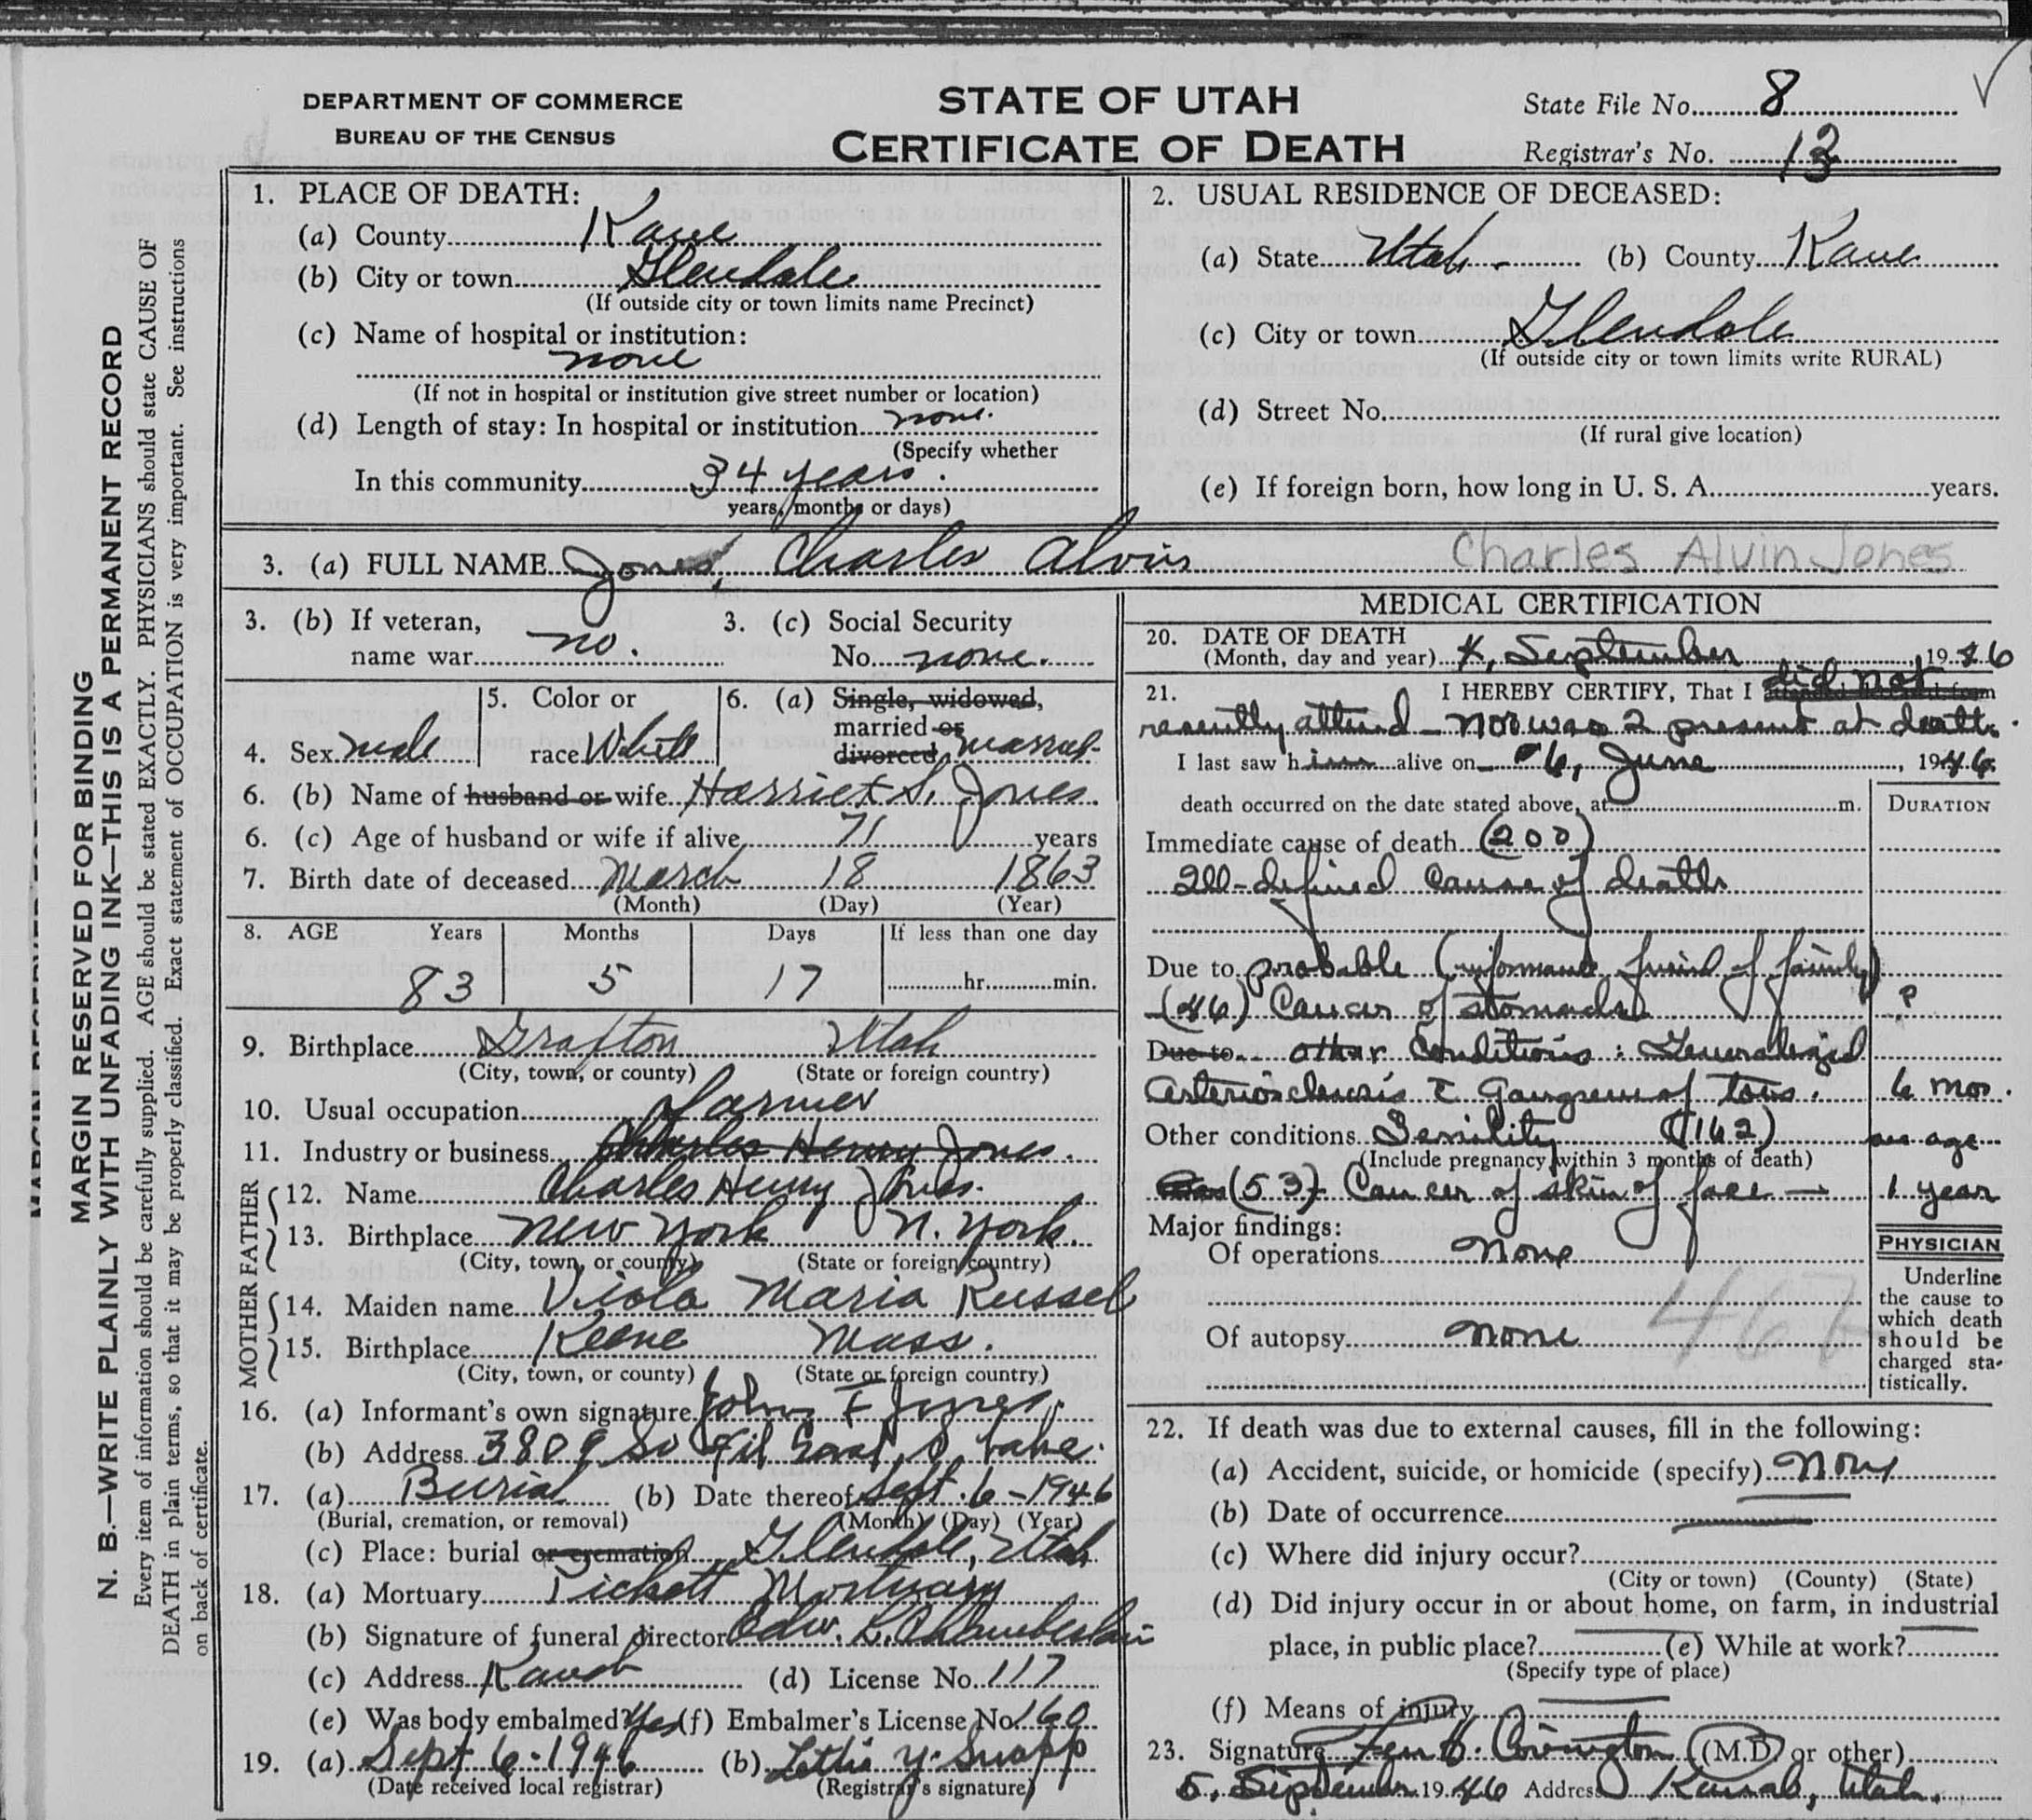 DEPARTMENT OF COMMERCE
BUREAU OF THE CENSUS
STATE OF UTAH
CERTIFICATE OF DEATH
State File No. 8
Registrar's No. 13
MARGIN RESERVED FOR BINDING
N. B.—WRITE PLAINLY WITH UNFADING INK—THIS IS A PERMANENT RECORD
Every item of information should be carefully supplied. AGE should be stated EXACTLY. PHYSICIANS should state CAUSE OF
DEATH in plain terms, so that it may be properly classified. Exact statement of OCCUPATION is very important. See instructions
on back of certificate.
1. PLACE OF DEATH:
(a) County Kane
(b) City or town Glendale
(If outside city or town limits name Precinct)
(c) Name of hospital or institution:
none
(If not in hospital or institution give street number or location)
(d) Length of stay: In hospital or institution none.
(Specify whether
In this community 34 years.
years, months or days)
2. USUAL RESIDENCE OF DECEASED:
(a) State Utah (b) County Kane
(c) City or town Glendale
(If outside city or town limits write RURAL)
(d) Street No.
(If rural give location)
(e) If foreign born, how long in U. S. A. years.
3. (a) FULL NAME Jones, Charles Alvin Charles Alvin Jones
3. (b) If veteran,
name war no.
3. (c) Social Security
No. none.
4. Sex male
5. Color or
race White
6. (a) Single, widowed,
married or
divorced married
6. (b) Name of husband or wife Harriet S. Jones.
6. (c) Age of husband or wife if alive 71 years
7. Birth date of deceased March 18 1863
(Month) (Day) (Year)
8. AGE Years Months Days If less than one day
83 5 17 hr. min.
9. Birthplace Grafton Utah
(City, town, or county) (State or foreign country)
10. Usual occupation Farmer
11. Industry or business Charles Henry Jones.
FATHER
12. Name Charles Henry Jones.
13. Birthplace New York N. York.
(City, town, or county) (State or foreign country)
MOTHER
14. Maiden name Viola Maria Russel
15. Birthplace Keene Mass.
(City, town, or county) (State or foreign country)
16. (a) Informant's own signature John F Jones.
(b) Address 3809 So
17. (a) Burial (b) Date thereof Sept. 6 - 1946
(Burial, cremation, or removal) (Month) (Day) (Year)
(c) Place: burial or cremation Glendale, Utah
18. (a) Mortuary Pickett Mortuary
(b) Signature of funeral director Edw. Chamberlain
(c) Address Kanab (d) License No. 117
(e) Was body embalmed? Yes (f) Embalmer's License No. 160
19. (a) Sept 6 - 1946 (b) Lettie Y. Swapp
(Date received local registrar) (Registrar's signature)
MEDICAL CERTIFICATION
20. DATE OF DEATH
(Month, day and year) 4, September 1946
21. I HEREBY CERTIFY, That I attended deceased from did not
recently attend - nor was I present at death.
I last saw him alive on 6, June, 1946
death occurred on the date stated above, at m.
DURATION
Immediate cause of death (200)
Ill-defined cause of death
Due to probable (informant friend of family)
(46) Cancer of stomach ?
Due to other Conditions: Generalized
Arteriosclerosis c Gangrene of toes. 6 mos.
Other conditions Senility (162) age
(Include pregnancy within 3 months of death)
(53) Cancer of skin of face — 1 year
Major findings:
Of operations none
Of autopsy none
PHYSICIAN
Underline
the cause to
which death
should be
charged sta-
tistically.
22. If death was due to external causes, fill in the following:
(a) Accident, suicide, or homicide (specify) None
(b) Date of occurrence
(c) Where did injury occur?
(City or town) (County) (State)
(d) Did injury occur in or about home, on farm, in industrial
place, in public place? (e) While at work?
(Specify type of place)
(f) Means of injury
23. Signature Covington (M.D. or other)
5, September 1946 Address Kanab, Utah.